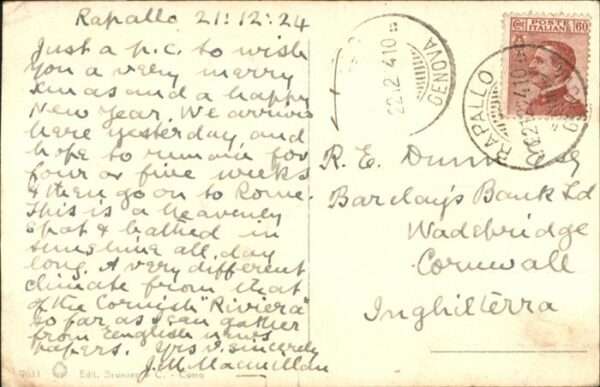 Rapallo 21:12:24
Just a p.c. to wish
you a very merry
Xmas and a happy
New Year. We arrived
here yesterday, and
hope to remain for
four or five weeks
& then go on to Rome.
This is a heavenly
spot & bathed in
sunshine all day
long. A very different
climate from that
of the Cornish "Riviera"
so far as I can gather
from English news
papers. Yrs v. sincerely
J. M. Macmillan
Edit. Brunner & C. - Como
22.12.24 10
GENOVA
POSTE
ITALIANE
60
RAPALLO
GENOVA
R. E. Dunn Esq
Barclay's Bank Ld
Wadebridge
Cornwall
Inghilterra